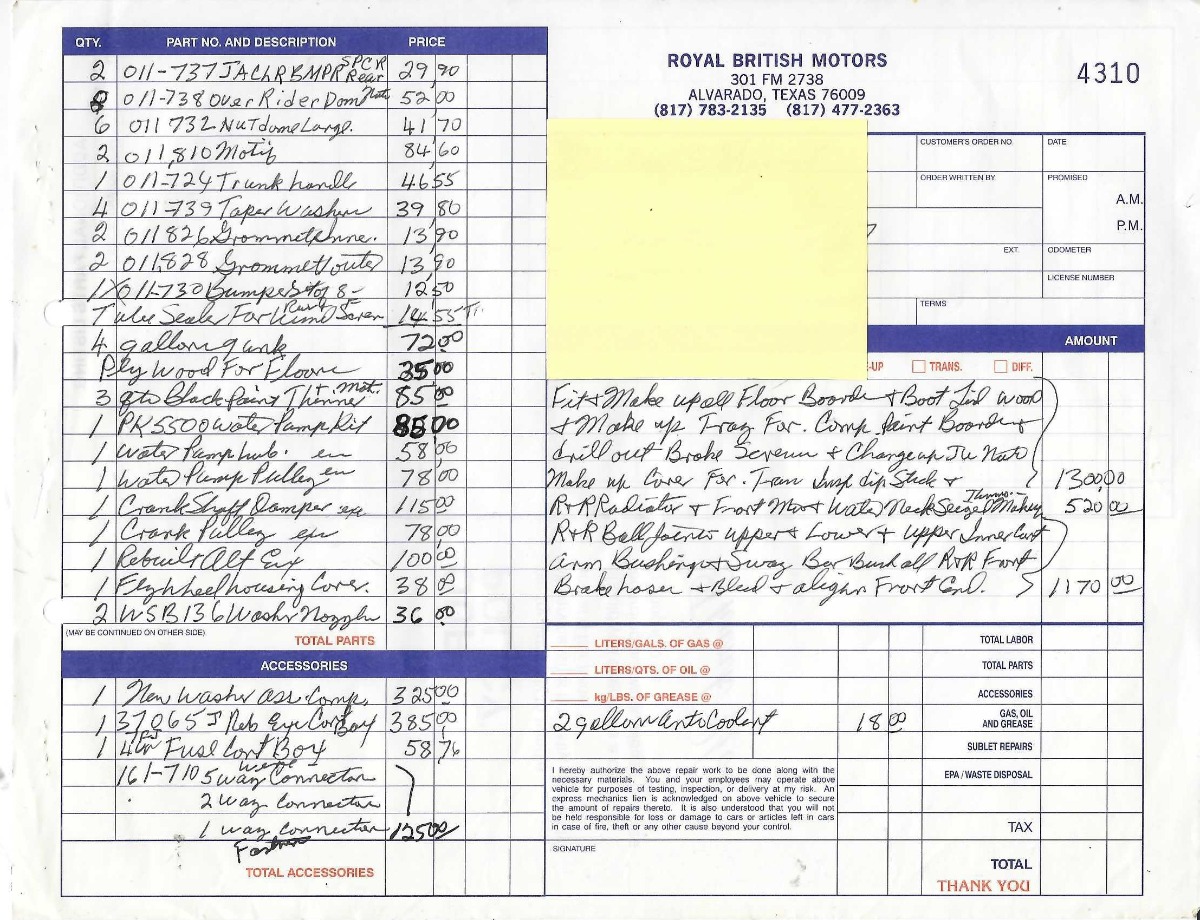 QTY. PART NO. AND DESCRIPTION PRICE
2 011-737 JACLR BMPR SPCR Rear 29 90
8 011-738 Over Rider Dom Nuts 52 00
6 011 732 Nut dome Large. 41 70
2 011,810 Motif 84 60
1 011-724 Trunk handle 46 55
4 011-739 Taper Washer 39 80
2 011826 Grommet inne. 13 90
2 011,828 Grommet outer 13 90
011-730 Bumper 8- 12 50
Tube Sealer For Screen 14 55
4 gallon gunk 72 00
Ply Wood For Floor 35 00
3 qts Black Paint Thinner + Mat. 85 00
1 PK5500 Water Pump Kit 85 00
1 Water Pump hub. 58 00
1 Water Pump Pulley 78 00
1 Crank Shaft Damper ex 115 00
1 Crank Pulley ex 78 00
1 Rebuilt Alt Ex 100 00
1 Flywheel housing Cover. 38 00
2 WSB136 Washer Nozzle 36 00
(MAY BE CONTINUED ON OTHER SIDE)
TOTAL PARTS
ACCESSORIES
1 New Washer Ass. Comp. 325 00
1 Reb Box 385 00
1 Fuse Box 58 76
161-710 5 way Connector
2 way Connector
1 way Connector 125 00
TOTAL ACCESSORIES
ROYAL BRITISH MOTORS
301 FM 2738
ALVARADO, TEXAS 76009
(817) 783-2135 (817) 477-2363
4310
CUSTOMER'S ORDER NO. DATE
ORDER WRITTEN BY PROMISED
A.M.
P.M.
EXT. ODOMETER
LICENSE NUMBER
TERMS
AMOUNT
-UP TRANS. DIFF.
Fit + Make up all Floor Boards + Boot Lid wood
+ Make up Tray For. Comp. Paint Boards +
drill out Broke Screws + Change up Nuts
Make up Cover For. Tran Insp dip Stick + 1300 00
R+R Radiator + Front Mo+ Water Neck Seized 520 00
R+R Ball Joints upper + Lower + Upper Inner Cont
arm Bushings + Sway Bar Bush all R+R Front
Brake hoses + Bleed + align Front End. 1170 00
LITERS/GALS. OF GAS @ TOTAL LABOR
LITERS/QTS. OF OIL @ TOTAL PARTS
kg/LBS. OF GREASE @ ACCESSORIES
2 gallon Anti Coolant 18 00 GAS, OIL AND GREASE
SUBLET REPAIRS
EPA / WASTE DISPOSAL
I hereby authorize the above repair work to be done along with the
necessary materials. You and your employees may operate above
vehicle for purposes of testing, inspection, or delivery at my risk. An
express mechanics lien is acknowledged on above vehicle to secure
the amount of repairs thereto. It is also understood that you will not
be held responsible for loss or damage to cars or articles left in cars
in case of fire, theft or any other cause beyond your control.
TAX
SIGNATURE
TOTAL
THANK YOU